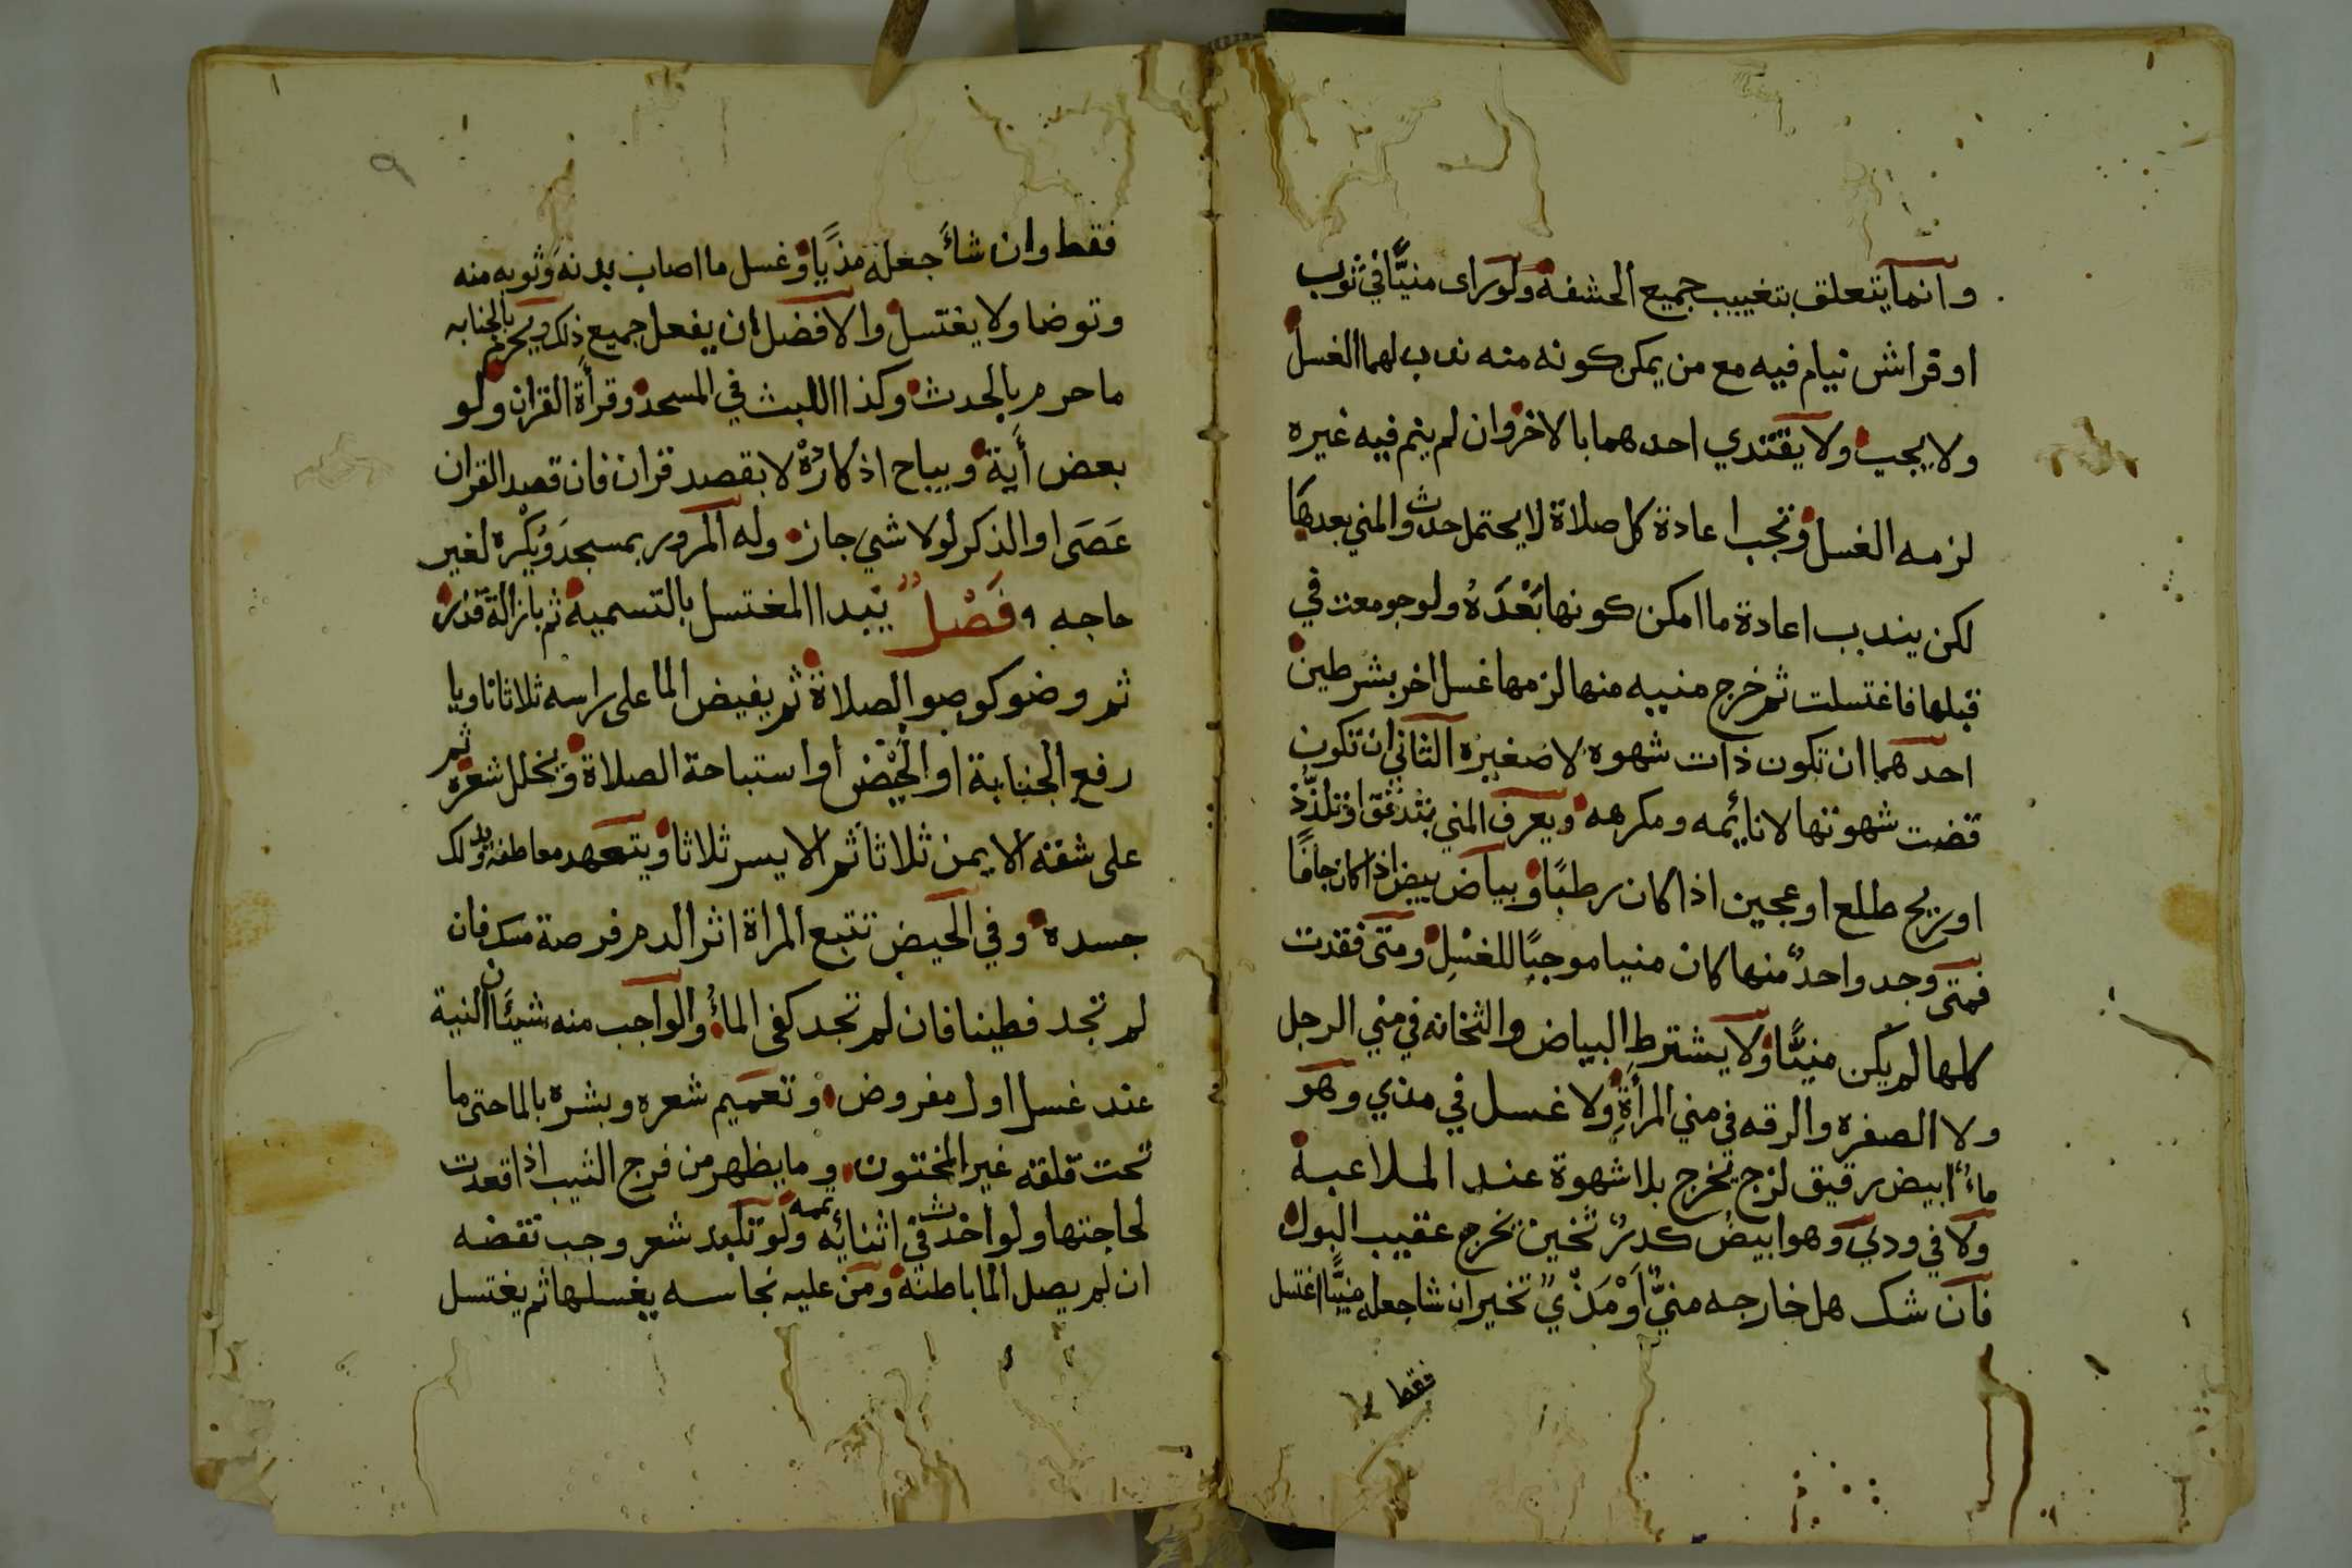 وانما يتعلق بتغييب جميع الحشفة ولو راى منيًّا في ثوب
او فراش نيام فيه مع من يمكن كونه منه ندب لهما الغسل
ولا يجب ولا يقتدي احدهما بالاخر وان لم ينم فيه غيره
لزمه الغسل وتجب اعادة كل صلاة لا يحتمل حدث والمني بعدها
لكن يندب اعادة ما امكن كونها بَعْدَهُ ولو جومعت في
قبلها فاغتسلت ثم خرج منيه منها لزمها غسل اخر بشرطين
احدهما ان تكون ذات شهوه لا صغيره الثاني ان تكون
قضت شهوتها لا نائمه ومكرهه ويعرف المني بتدفق او تلذذ
او ريح طلع او عجين اذا كان رطبًا وبياض بيض اذا كان جافًا
فمتى وجد واحدٌ منها كان منيا موجبًا للغسل ومتى فقدت
كلها لم يكن منيًّا ولا يشترط البياض والثخانه في مني الرجل
ولا الصفره والرقه في مني المرأة ولا غسل في مذي وهو
ماءٌ ابيض رقيق لزج يخرج بلا شهوة عند الملاعبة
ولا في ودي وهو ابيضُ كدرٌ ثخين يخرج عقيب البول
فان شك هل خارجه منيٌّ اَوْ مَذْيٌ تخير ان شا جعله منيًّا اغتسل
فقط
٩
فقط وان شاءَ جعله مذيًا وغسل ما اصاب بدنه وثوبه منه
وتوضا ولا يغتسل والافضل ان يفعل جميع ذلك ويحرم بالجنابه
ما حرم بالحدث وكذا اللبث في المسجد وقرأة القران ولو
بعض أية ويباح اذكارُهْ لا بقصد قران فان قصد القران
عَصَى او الذكر او لا شي جاز وله المرور بمسجد ويكره لغير
حاجه فَصْلٌ يبدا المغتسل بالتسمية ثم بازالة قذر
ثم وضو كوضو الصلاة ثم يفيض الما على راسه ثلاثا ناويا
رفع الجنابة او الحيض او استباحة الصلاة ويخلل شعره ثم
على شقه الايمن ثلاثا ثم الايسر ثلاثا ويتعهد معاطفه ويدلك
جسده وفي الحيض تتبع المراة اثر الدم فرصة مسك فان
لم تجد فطينا فان لم تجد كفى الماءُ والواجب منه شيئان النية
عند غسل اول مفروض وتعميم شعره وبشره بالما حتى ما
تحت قلفة غير المختون وما يظهر من فرج الثيب اذا قعدت
لحاجتها ولو احدث في اثنائه تممه ولو تلبد شعر وجب نقضه
ان لم يصل الما باطنه ومن عليه نجاسه يغسلها ثم يغتسل